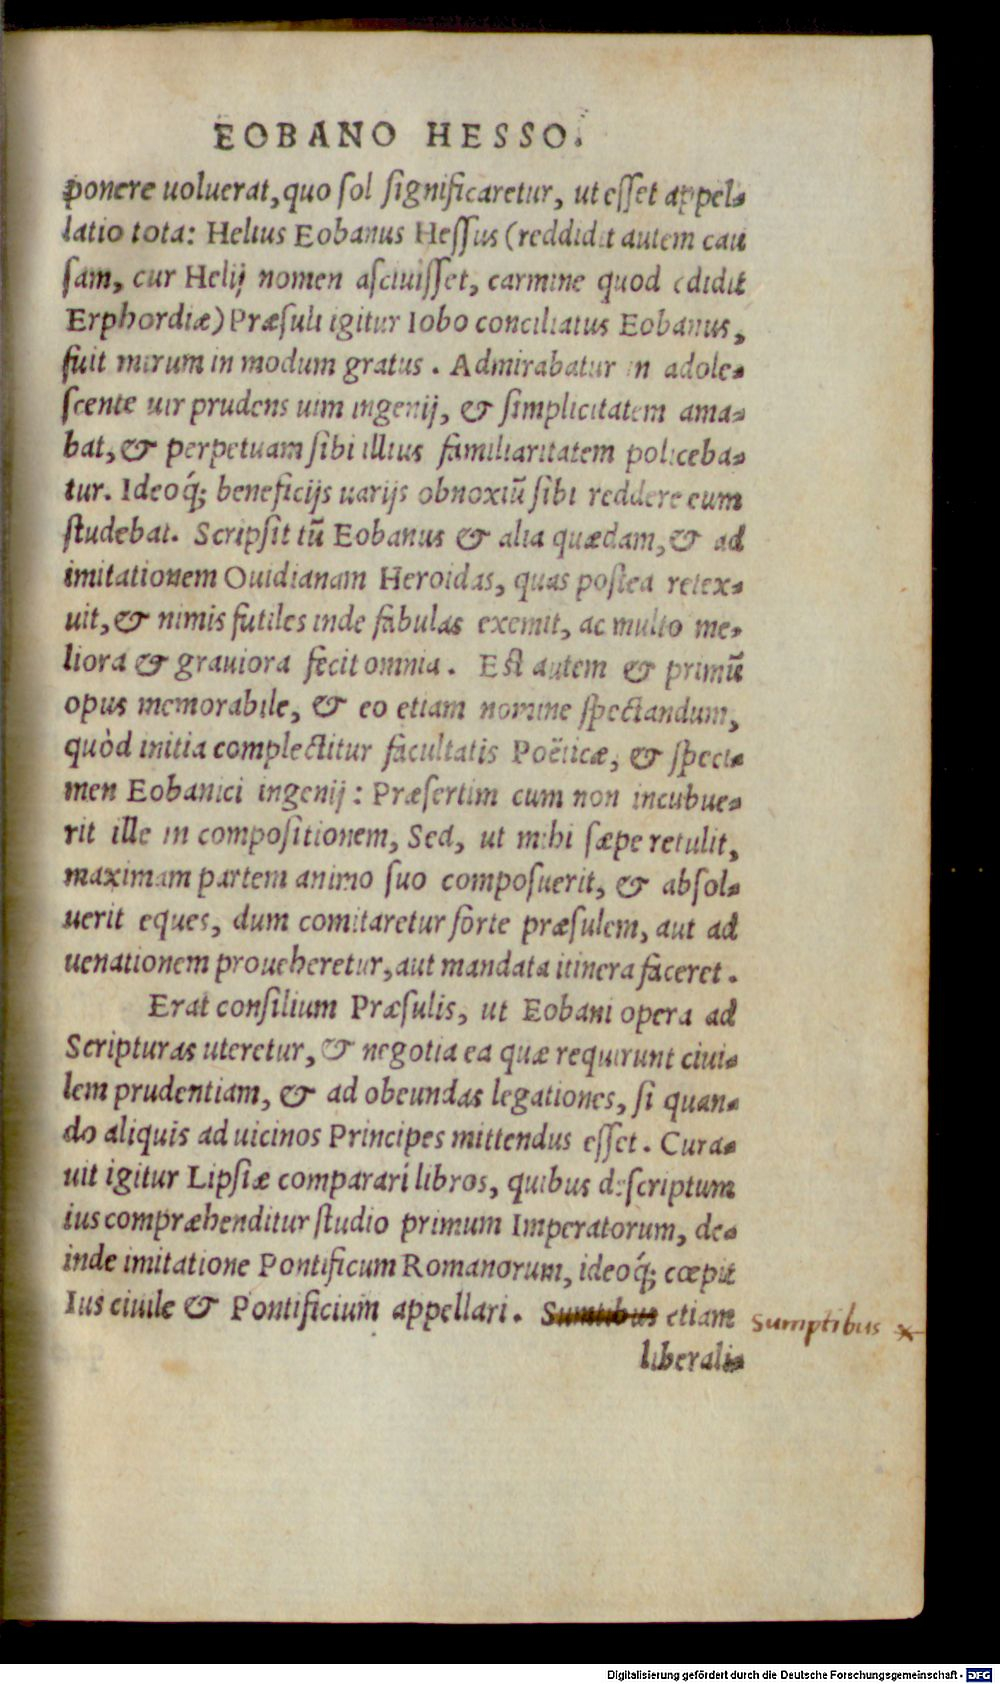 EOBANO HESSO.
ponere uoluerat, quo ſol ſignificaretur, ut eſſet appel-
latio tota: Helius Eobanus Heſſus (reddidit autem cau
ſam, cur Helij nomen aſciuiſſet, carmine quod edidit
Erphordiæ) Præſuli igitur Iobo conciliatus Eobanus,
fuit mirum in modum gratus. Admirabatur in adole-
ſcente uir prudens uim ingenij, & ſimplicitatem ama-
bat, & perpetuam ſibi illius familiaritatem policeba-
tur. Ideoq́; beneficijs uarijs obnoxiū ſibi reddere eum
ſtudebat. Scripſit tū Eobanus & alia quædam, & ad
imitationem Ouidianam Heroidas, quas poſtea retex-
uit, & nimis futiles inde fabulas exemit, ac multo me-
liora & grauiora fecit omnia. Eſt autem & primū
opus memorabile, & eo etiam nomine ſpectandum,
quòd initia complectitur facultatis Poëticæ, & ſpeci-
men Eobanici ingenij: Præſertim cum non incubue-
rit ille in compoſitionem, Sed, ut mihi ſæpe retulit,
maximam partem animo ſuo compoſuerit, & abſol-
uerit eques, dum comitaretur forte præſulem, aut ad
uenationem proueheretur, aut mandata itinera faceret.
Erat conſilium Præſulis, ut Eobani opera ad
Scripturas uteretur, & negotia ea quæ requirunt ciui-
lem prudentiam, & ad obeundas legationes, ſi quan-
do aliquis ad uicinos Principes mittendus eſſet. Cura-
uit igitur Lipſiæ comparari libros, quibus deſcriptum
ius compræhenditur ſtudio primum Imperatorum, de-
inde imitatione Pontificum Romanorum, ideoq́; cœpit
Ius ciuile & Pontificium appellari. Sumtibus etiam sumptibus
liberali-
Digitalisierung gefördert durch die Deutsche Forschungsgemeinschaft - DFG